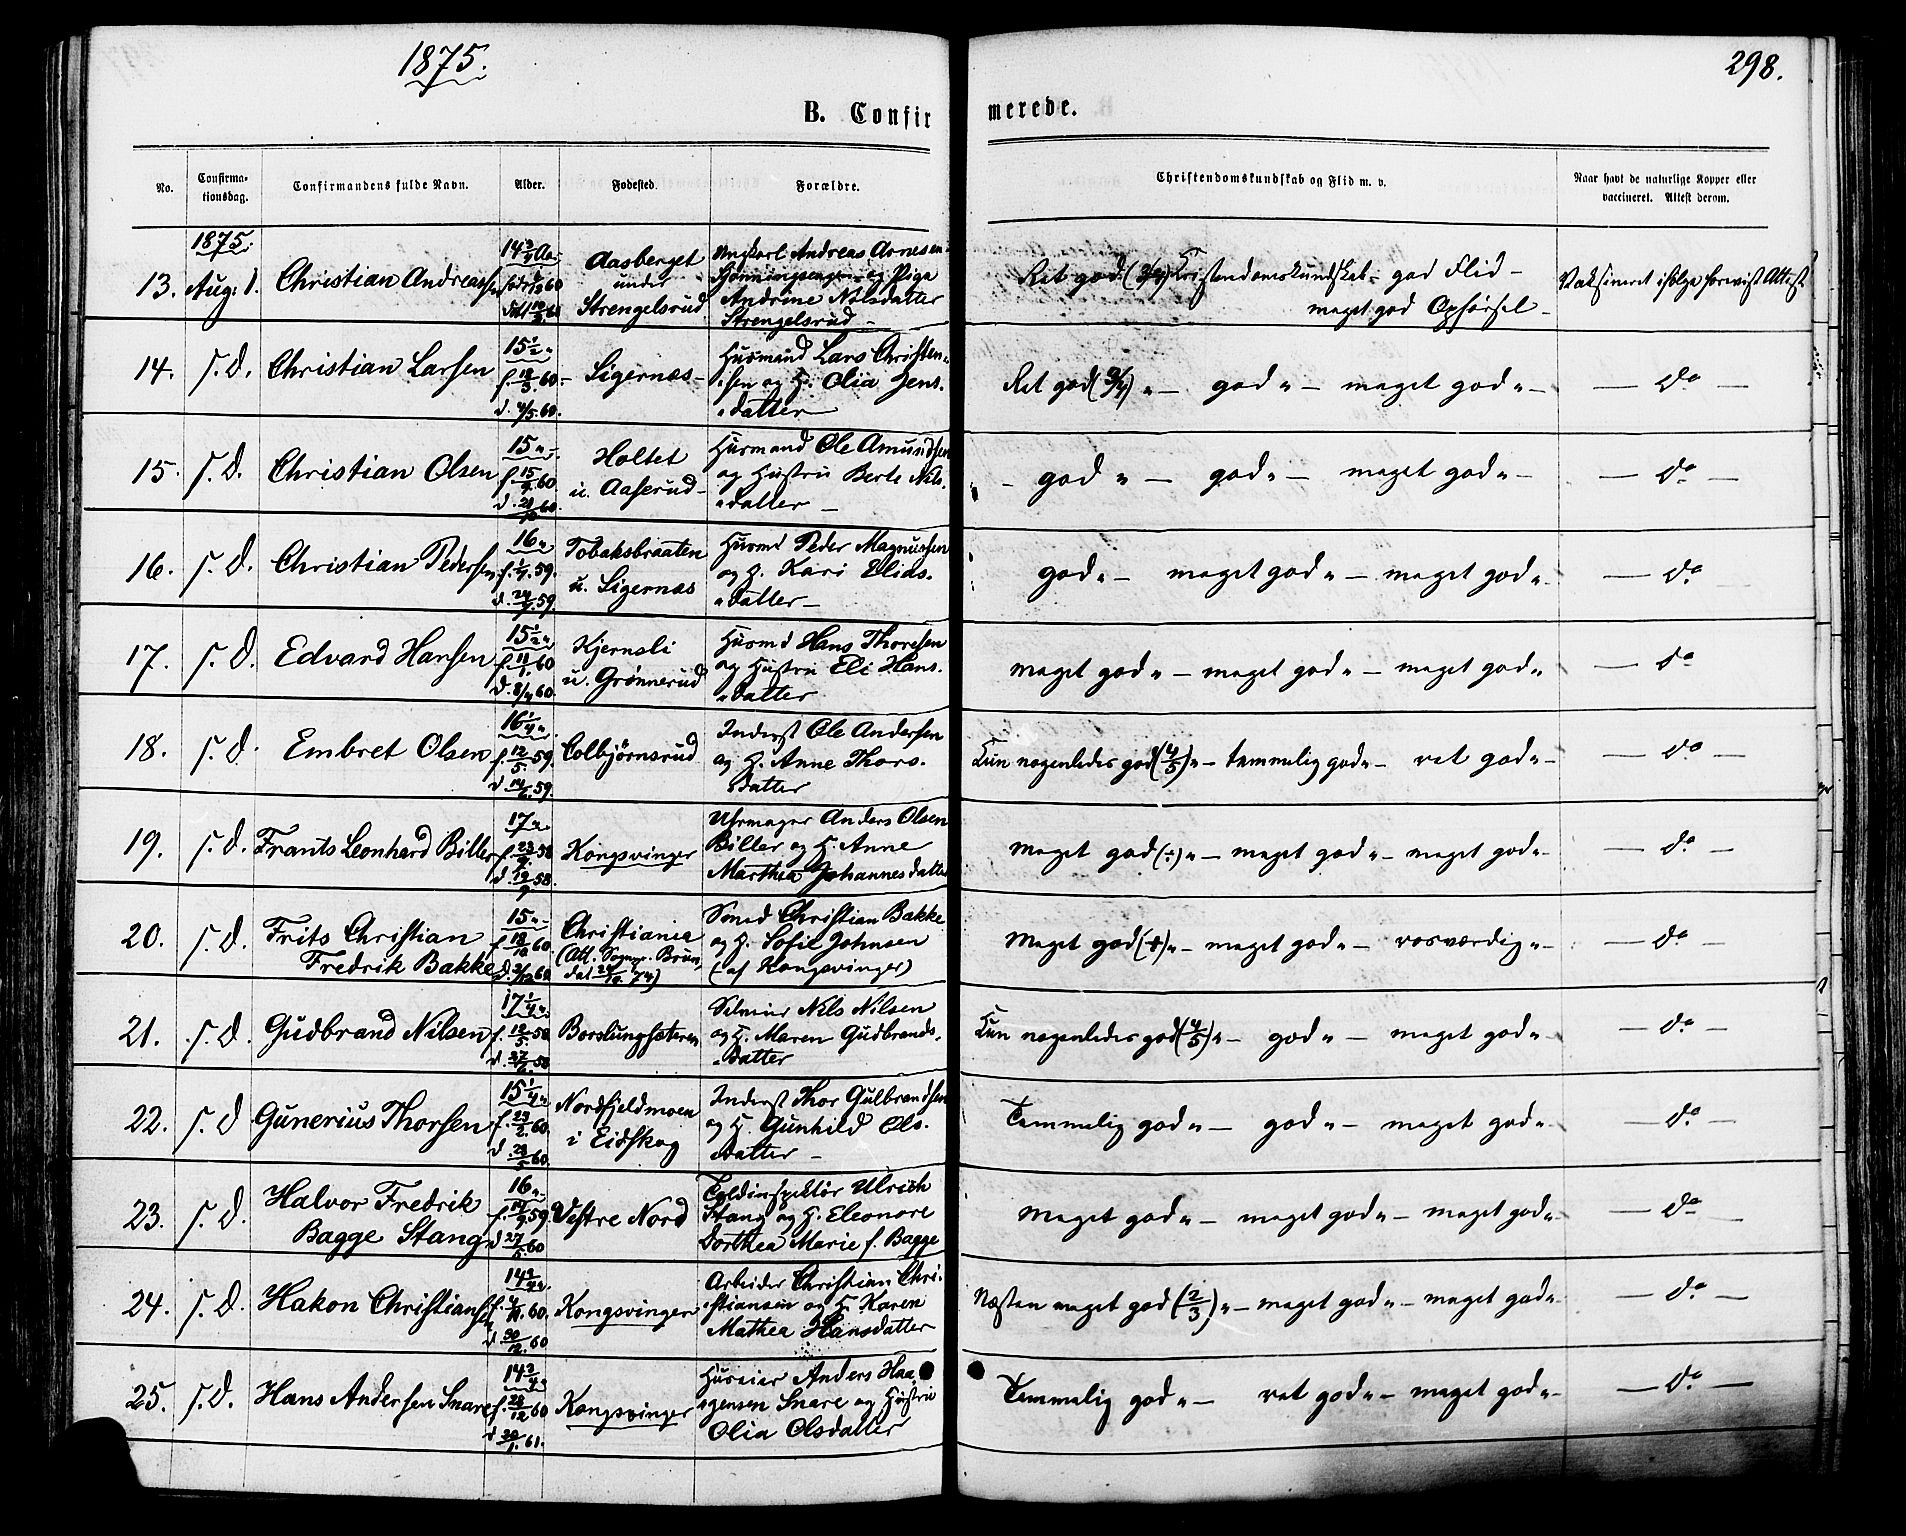 1875.
298.
B. Confirmerede.
No.
Confirmationsdag.
Confirmandens fulde Navn.
Alder.
Fødested.
Forældre.
Christendomskundskab og Flid m. v.
Naar havt de naturlige Kopper eller vaccineret. Attest derom.
1875.
13. Aug: 1. Christian Andreassen
14 3/4 Aa.
Aasberget
under
Strengelsrud
Ungkarl Andreas Arnesen
og Pige
Andrine Nilsdatter
Strengelsrud –
Ret god (3/4) Kristendomskundskab – god Flid –
meget god Opførsel –
Vaksineret ifølge forevist Attest
14. s. d. Christian Larsen
15 1/2 "
f. 18/3 60 –
d. 4/5. 60.
Sigernæs –
Husmand Lars Christen-
sen og H. Olia Jens-
datter
Ret god (3/4) " – god " – meget god " –
— do —
15. s. d. Christian Olsen
15 " –
f. 15/9 60
d. 21/10 60.
Holtet
u. Aaserud –
Husmand Ole Amundsen
og Hustru Berte Nils-
datter –
– god " – god " – meget god " –
— do —
16. s. d. Christian Pedersen
16 "
f. 1/7. 59.
d. 24/7 59
Tobaksbraaten
u. Sigernæs
Husmd Peder Magnussen
og H. Kari Elias-
datter –
god " – meget god " – meget god " –
— do —
17. s. d. Edvard Hansen
15 1/2 "
f. 11/1. 60
d. 8/4 60
Kjernsli
u. Grønnerud
Husmd Hans Thoresen
og Hustru Eli Hans-
datter
meget god " – meget god " – meget god "
— do
18. s. d. Embret Olsen
16 1/4 "
f. 12/5. 59.
d. 14/6. 59.
Colbjørnsrud
Inderst Ole Andersen
og H. Anne Thors-
datter
Kun nogenledes god (4/5) " – temmelig god " – ret god " –
— do —
19. s. d. Frants Leonhard Biller
17 "
f. 23/7. 58
d. 19/9 58.
Kongsvinger
Uhrmager Anders Olsen
Biller og H. Anne
Marthea Johannesdatter
Meget god (÷) " – meget god " – meget god " –
— do —
20. s. d. Frits Christian
Fredrik Bakke
15 " –
f. 18/10 60
d. 2/12 60
Christiania
(Att. Sognepr. Brun,
dat 24/9. 74)
Smed Christian Bakke
og H. Sofie Johnsen
(– af Kongsvinger)
Meget god (+) " – meget god " – rosværdig " –
— do —
21. s. d. Gudbrand Nilsen
17 1/4 "
f. 18/5. 58
d. 27/6. 58
Børslungsæteren
Selveier Nils Nilsen
og H. Maren Gudbrands-
datter
Kun nogenledes god (4/5) " – god " – meget god " –
— do —
22. s. d. Gunerius Thorsen
15 1/4 "
f. 23/2. 60.
d. 28/5 60.
Nordfjeldmoen
i Eidskog
Inderst Thor Gulbrandsen
og H. Gunhild Ols-
datter –
Temmelig god " – god " – meget god " –
— do —
23. s. d. Halvor Fredrik
Bagge Stang
16 "
f. 14/9. 59.
d. 27/5. 60
Vestre Nord
Toldinspektør Ulrich
Stang og H. Eleonore
Dorthea Marie f. Bagge
Meget god " – meget god " – meget god " –
— do —
24. s. d. Hakon Christiansen
14 3/4 "
f. 4/11. 60.
d. 30/12. 60
Kongsvinger
Arbeider Christian Chri-
stiansen og H. Karen
Mathea Hansdatter
Næsten meget god (2/3) " – meget god " – meget god " –
— do —
25. s. d. Hans Andersen Snare
14 3/4 "
f. 28/12 60
d. 30/1. 61.
Kongsvinger
Huseier Anders Haa-
gensen Snare og Hustru
Olia Olsdatter
Temmelig god " – ret god " – meget god " –
— do —